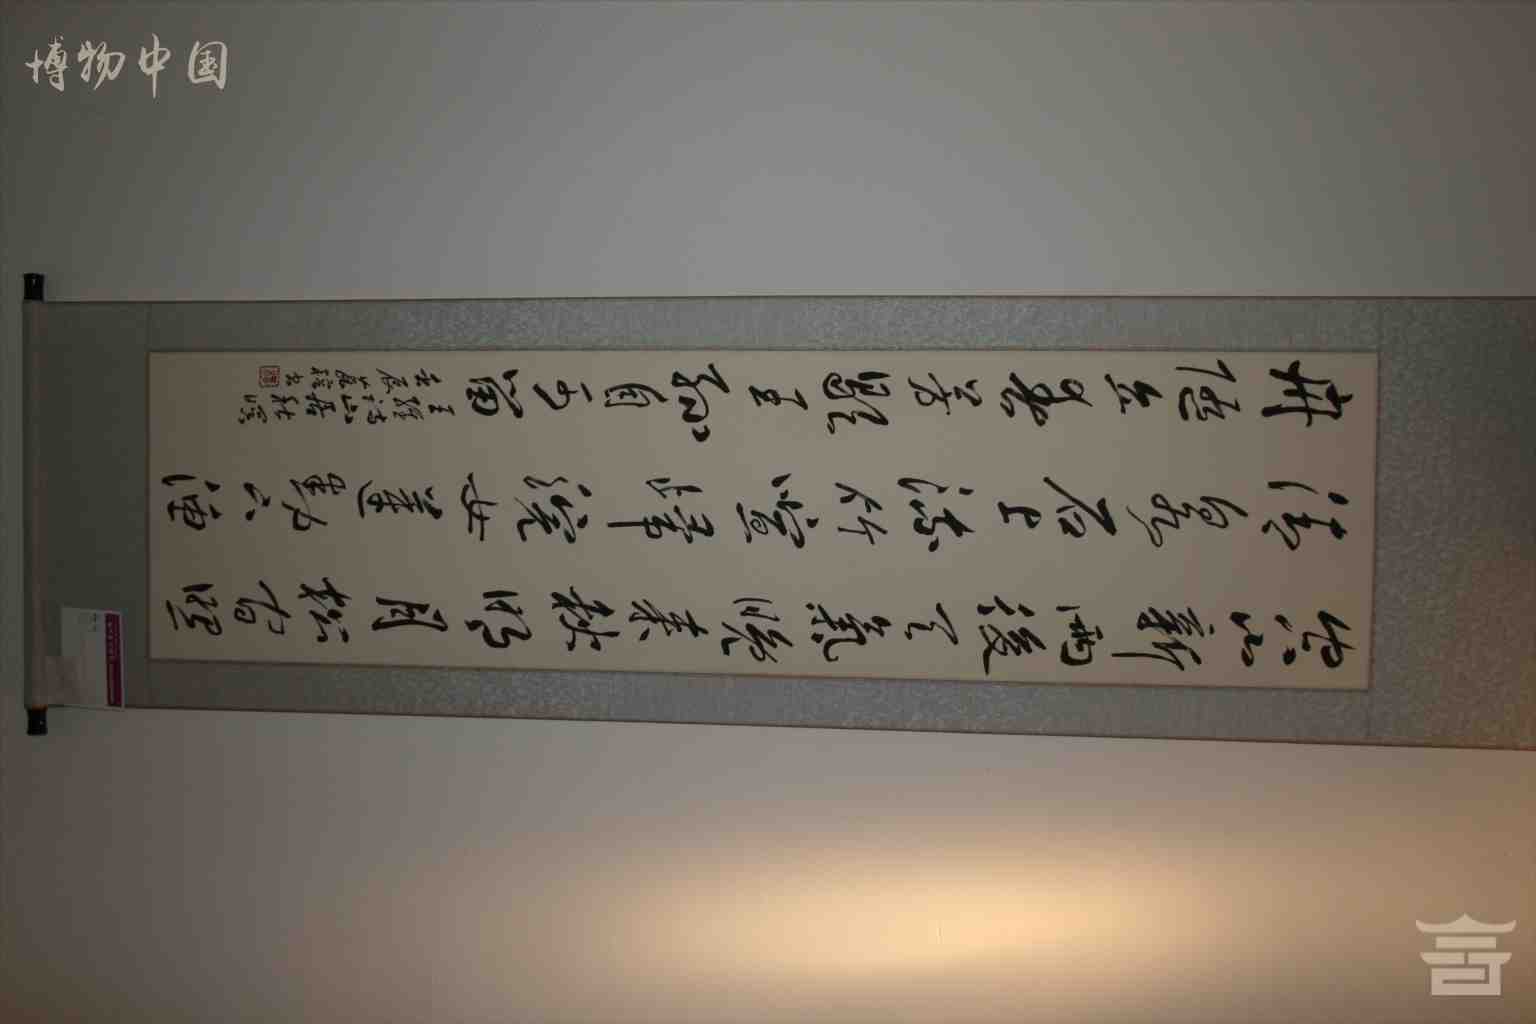 博物中国
空山新雨後天氣晚來秋明月松間照
清泉石上流竹喧歸浣女蓮動下漁
舟隨意春芳歇王孫自可留
王維詩山居秋暝